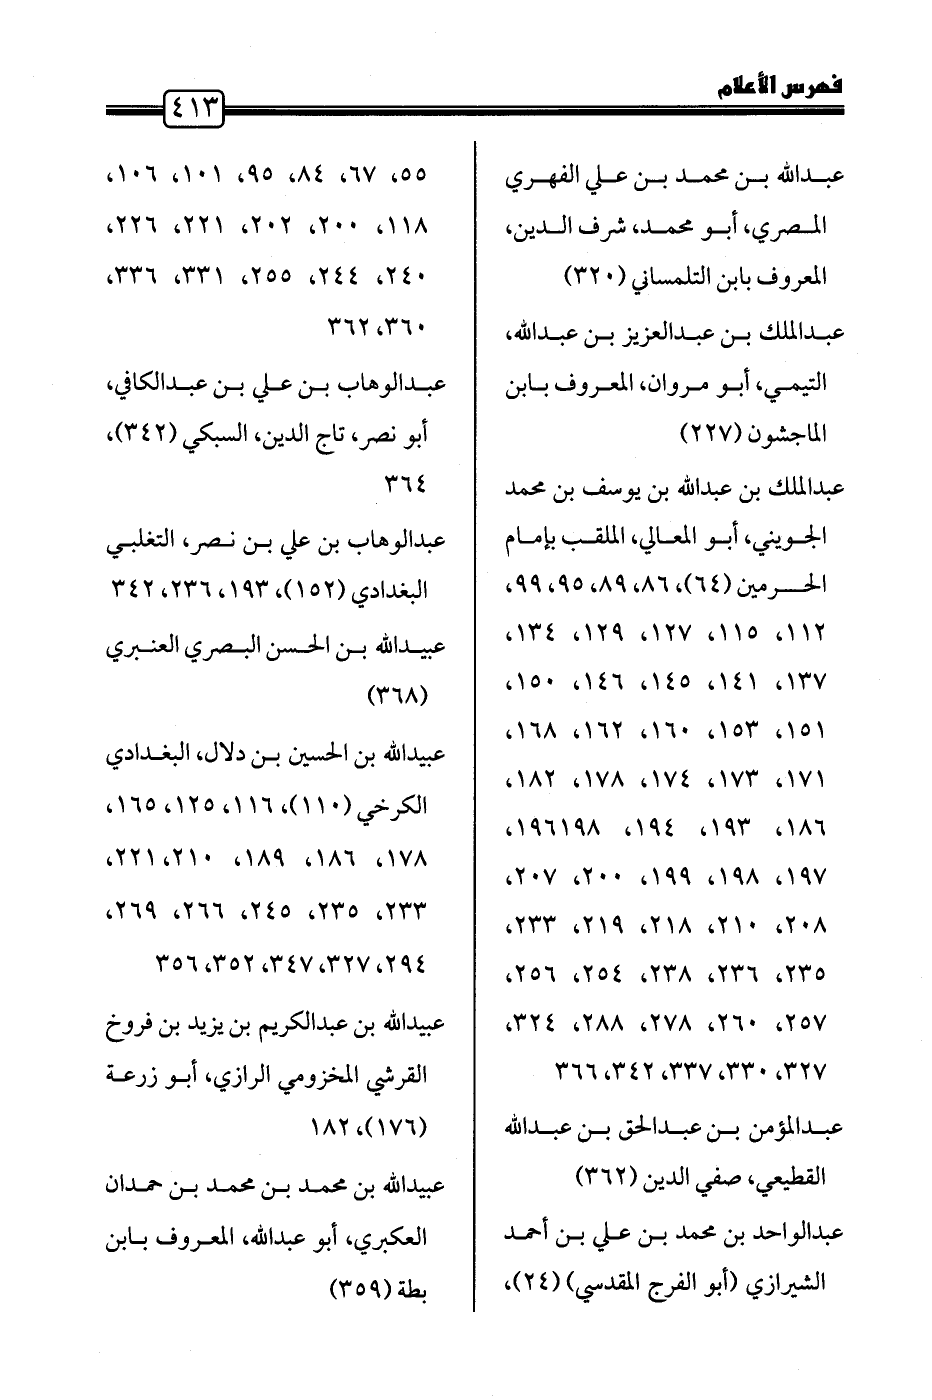 فهرس الأعلام
٤١٣
عبدالله بن محمد بن علي الفهري
المصري، أبو محمد، شرف الدين،
المعروف بابن التلمساني (٣٢٠)
عبدالملك بن عبدالعزيز بن عبدالله،
التيمي، أبو مروان، المعروف بابن
الماجشون (٢٢٧)
عبدالملك بن عبدالله بن يوسف بن محمد
الجويني، أبو المعالي، الملقب بإمام
الحرمين (٦٤)، ٨٦، ٨٩، ٩٥، ٩٩،
١١٢، ١١٥، ١٢٧، ١٢٩، ١٣٤،
١٣٧، ١٤١، ١٤٥، ١٤٦، ١٥٠،
١٥١، ١٥٣، ١٦٠، ١٦٢، ١٦٨،
١٧١، ١٧٣، ١٧٤، ١٧٨، ١٨٢،
١٨٦، ١٩٣، ١٩٤، ١٩٦١٩٨،
١٩٧، ١٩٨، ١٩٩، ٢٠٠، ٢٠٧،
٢٠٨، ٢١٠، ٢١٨، ٢١٩، ٢٣٣،
٢٣٥، ٢٣٦، ٢٣٨، ٢٥٤، ٢٥٦،
٢٥٧، ٢٦٠، ٢٧٨، ٢٨٨، ٣٢٤،
٣٢٧، ٣٣٠، ٣٣٧، ٣٤٢، ٣٦٦
عبدالمؤمن بن عبدالحق بن عبدالله
القطيعي، صفي الدين (٣٦٢)
عبدالواحد بن محمد بن علي بن أحمد
الشيرازي (أبو الفرج المقدسي) (٢٤)،
٥٥، ٦٧، ٨٤، ٩٥، ١٠١، ١٠٦،
١١٨، ٢٠٠، ٢٠٢، ٢٢١، ٢٢٦،
٢٤٠، ٢٤٤، ٢٥٥، ٣٣١، ٣٣٦،
٣٦٠، ٣٦٢
عبدالوهاب بن علي بن عبدالكافي،
أبو نصر، تاج الدين، السبكي (٣٤٢)،
٣٦٤
عبدالوهاب بن علي بن نصر، التغلبي
البغدادي (١٥٢)، ١٩٣، ٢٣٦، ٣٤٢
عبيدالله بن الحسن البصري العنبري
(٣٦٨)
عبيدالله بن الحسين بن دلال، البغدادي
الكرخي (١١٠)، ١١٦، ١٢٥، ١٦٥،
١٧٨، ١٨٦، ١٨٩، ٢١٠، ٢٢١،
٢٣٣، ٢٣٥، ٢٤٥، ٢٦٦، ٢٦٩،
٢٩٤، ٣٢٧، ٣٤٧، ٣٥٢، ٣٥٦
عبيدالله بن عبدالكريم بن يزيد بن فروخ
القرشي المخزومي الرازي، أبو زرعة
(١٧٦)، ١٨٢
عبيدالله بن محمد بن محمد بن حمدان
العكبري، أبو عبدالله، المعروف بابن
بطة (٣٥٩)